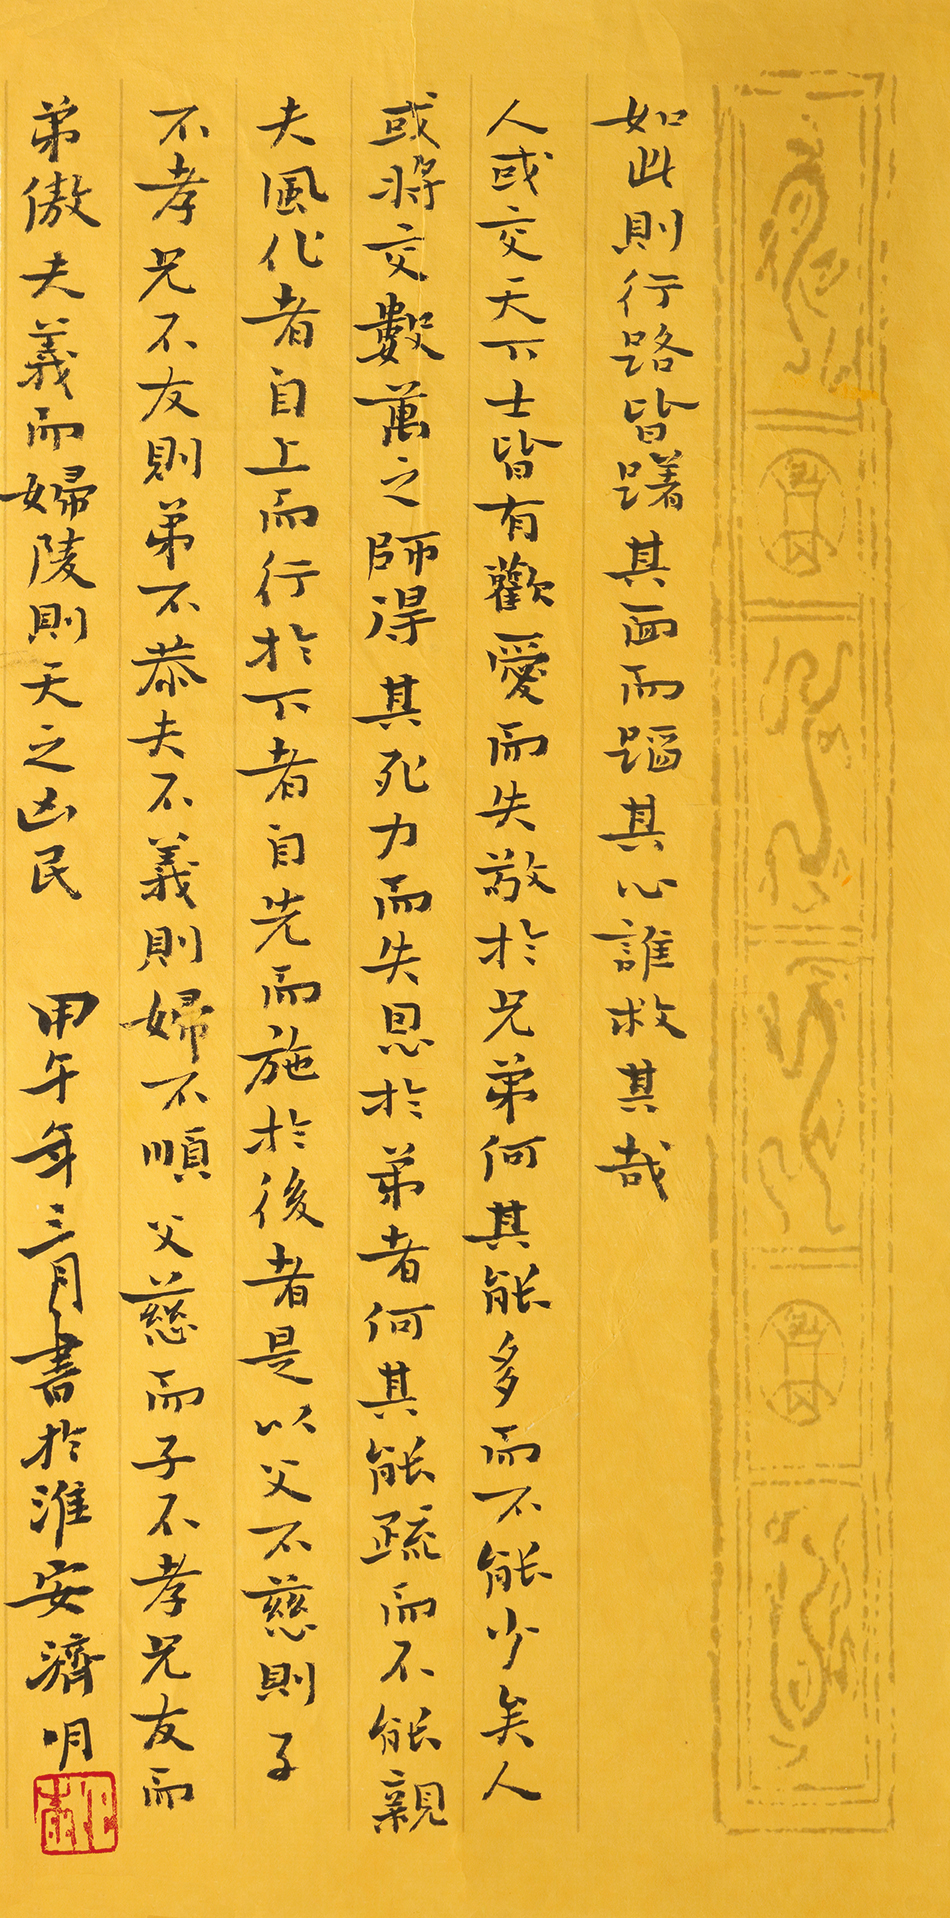 如此則行路皆躇其面而蹈其心誰救其哉
人或交天下士皆有歡愛而失敬於兄弟何其能多而不能少矣人
或將交數萬之師得其死力而失恩於弟者何其能疏而不能親
夫風化者自上而行於下者自先而施於後者是以父不慈則子
不孝兄不友則弟不恭夫不義則婦不順父慈而子不孝兄友而
弟傲夫義而婦陵則天之凶民 甲午年三月書於淮安濟明